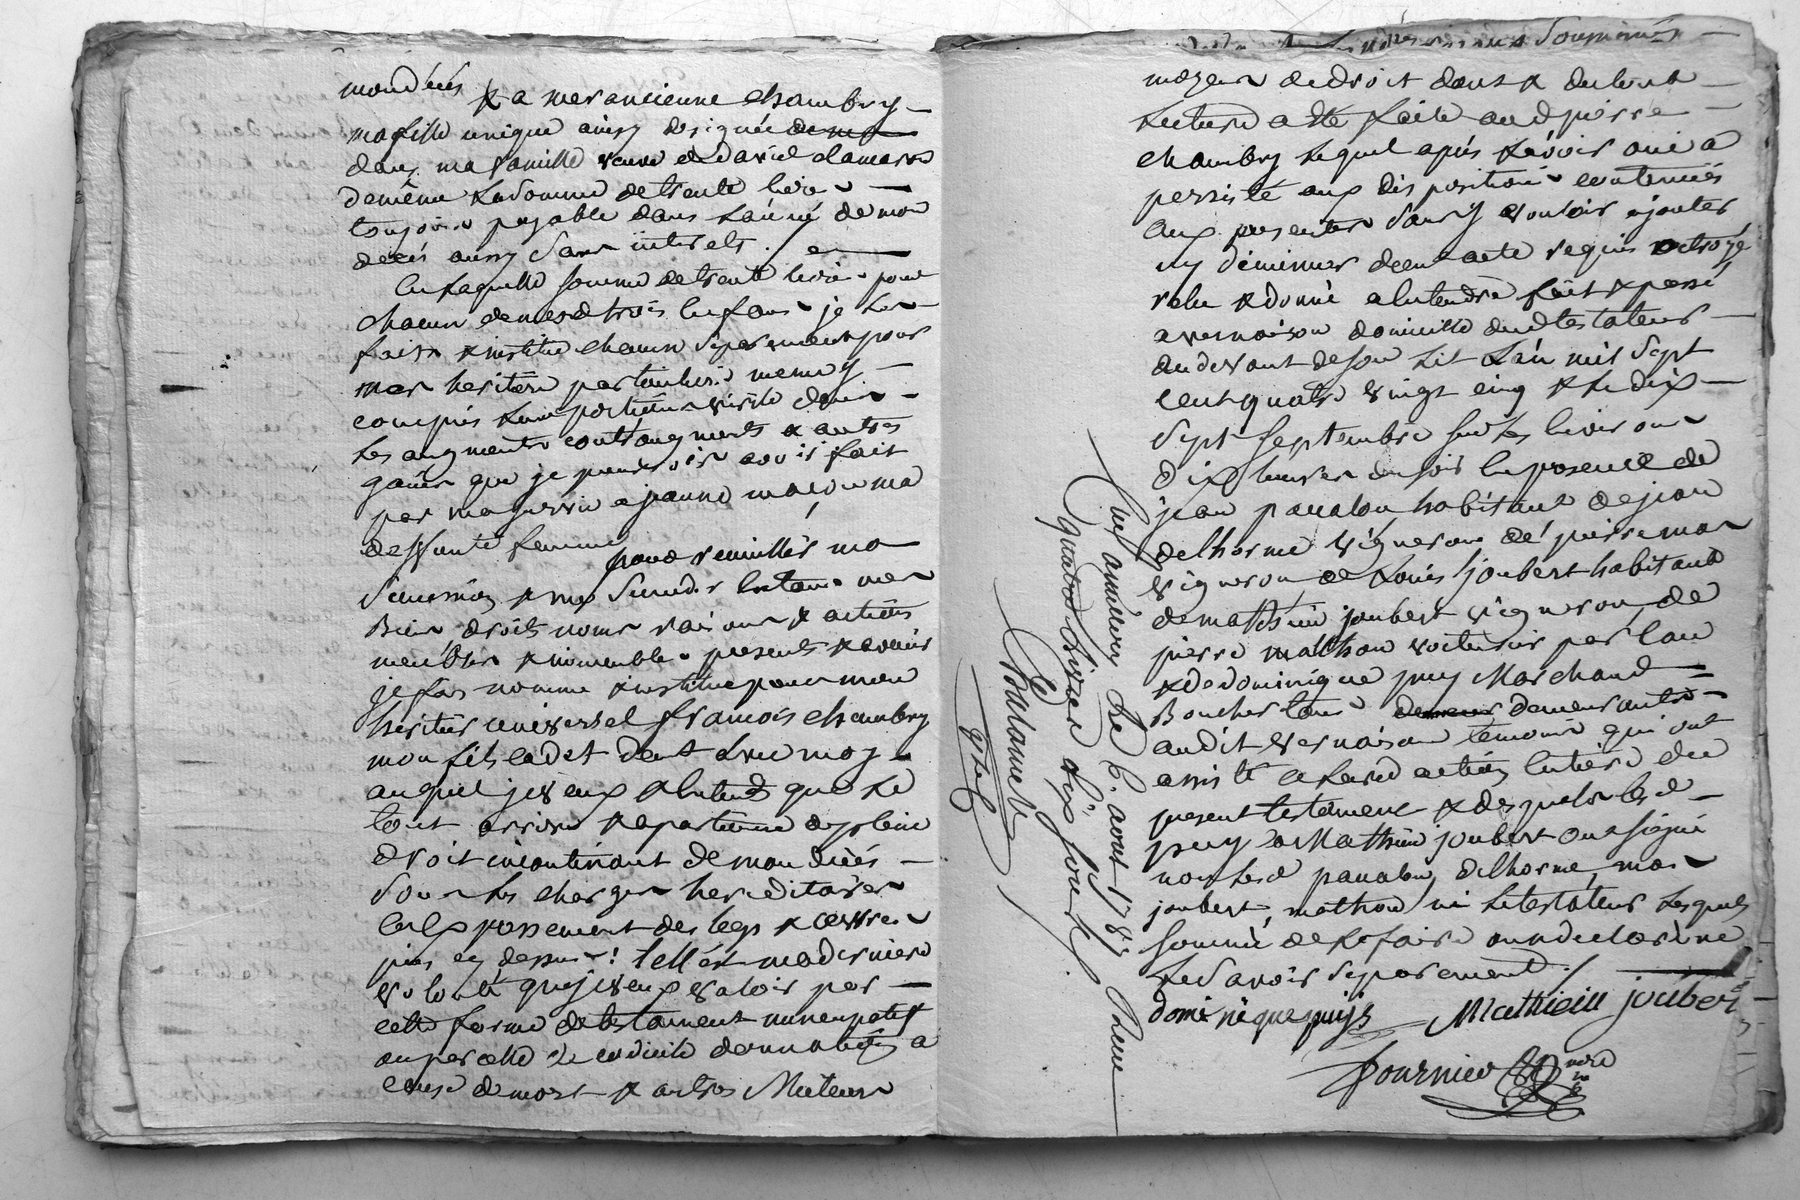 mon décés
& a mes ancienne chambry
ma fille unique ainsy designée de ma
dans ma famille veuve de david
de même la somme de trente livres
toujours payable dans l'année de mon
décés aussy sans interets. /
la laquelle somme de trente livres pour
chacun de mesd trois enfans je les
fais & institue chacun separement pour
mes heritiers particuliers memes y
compris leur portion virile dans
les augments contraugments & autres
gains que je pourrois avoir fait
par ma survie a jeanne ma
deffunte femme
pour recueillir ma
sucession & me succeder en tous mes
Biens droits noms raisons & actions
meubles & immeubles presents & avenir
je fais nomme & institue pour mon
heritier universel françois chambry
mon fils cadet deut avec moy
auquel je veux & entend que le
tout arrive & apartienne de plein
droit incontinant de mon décés
sous les charges hereditaires
l'expressement des legs & œuvres
pies cy dessus ! tell est ma derniere
volonté que je veux valoir par
cette forme de testament nuncupatif
ou par celle de codicile donnation a
cause de mort & autres Meilleurs
moyens de droit dont & du tout
lecture a été faite aud pierre
chambry lequel aprés l'avoir oui a
persisté aux dis positions contenues
aux presentes sans y vouloir ajouter
ny diminuer dont acte requis octroyé
relu & donné a entendre fait & passé
a vernaison domicille dud testateur
au devant de son lit l'an mil sept
cent quatre vingt cinq & le dix
sept septembre sur les environ
dix heures du soir en presence de
jean panalou habitant de jean
delhorme vigneron de pierre mas
vigneron de Louis joubert habitant
de mathieu joubert vigneron de
pierre mathou voiturier par l'au
& de dominique puy Marchand
Boucher tous demeur demeurants
audit vernaison temoins qui ont
assisté a la action entiere du
present testament & desquels led
puy & Mathieu joubert ont signé
non led panalou, delhorme, mas
joubert, mathou ni le testateur lesquels
sommé de le faire ont declaré ne
le savoir separement ./.
dominique puijs Mathieiu joubert
fournier
nore
Enf anniversy Le 6. aout 1787 Reçu
quatorze livres dix sous
Chalamel